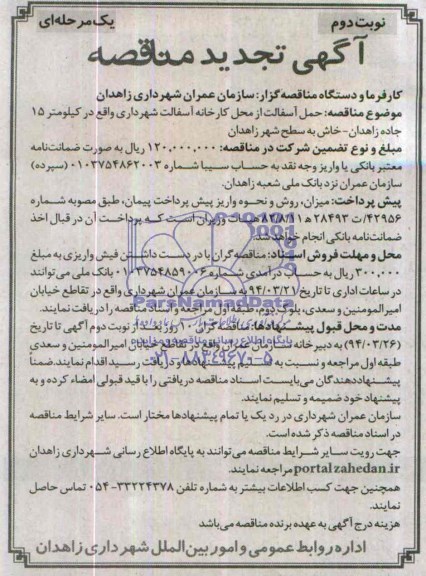 نوبت دوم
یک مرحله‌ای
آگهی تجدید مناقصه
کارفرما و دستگاه مناقصه گزار: سازمان عمران شهرداری زاهدان
موضوع مناقصه: حمل آسفالت از محل کارخانه آسفالت شهرداری واقع در کیلومتر ۱۵
جاده زاهدان-خاش به سطح شهر زاهدان
مبلغ و نوع تضمین شرکت در مناقصه: ۱۲۰,۰۰۰,۰۰۰ ریال به صورت ضمانت‌نامه
معتبر بانکی یا واریز وجه نقد به حساب سیبا شماره ۰۱۰۳۷۵۴۸۶۲۰۰۳ (سپرده)
سازمان عمران نزد بانک ملی شعبه زاهدان.
پیش پرداخت: میزان، روش و نحوه واریز پیش پرداخت پیمان، طبق مصوبه شماره
۴۲۹۵۶/ت ۲۸۴۹۳ه هیات وزیران است که پرداخت آن در قبال اخذ
ضمانت‌نامه بانکی انجام خواهد شد.
محل و مهلت فروش اسناد: مناقصه گران با در دست داشتن فیش واریزی به مبلغ
۳۰۰,۰۰۰ ریال به حساب درآمدی شماره بانک ملی می‌توانند
در ساعات اداری تا تاریخ ۹۴/۰۳/۲۱ به سازمان عمران شهرداری واقع در تقاطع خیابان
امیرالمومنین و سعدی، بلوک دوم، طبقه اول مراجعه و اسناد مناقصه را دریافت نمایند.
مدت و محل قبول پیشنهادها: مناقصه گران ۱۰ روز از نشر نوبت دوم آگهی تا تاریخ
(۹۴/۰۳/۲۶) به دبیرخانه سازمان عمران واقع در تقاطع خیابان امیرالمومنین و سعدی
طبقه اول مراجعه و نسبت به تسلیم پیشنهادها و دریافت رسید اقدام نمایند. ضمناً
پیشنهاددهندگان می‌بایست اسناد مناقصه دریافتی را با قید قبولی امضاء کرده و به
پیشنهاد خود ضمیمه و تسلیم نمایند.
سازمان عمران شهرداری در رد یک یا تمام پیشنهادها مختار است. سایر شرایط مناقصه
در اسناد مناقصه ذکر شده است.
جهت رویت سایر شرایط مناقصه می‌توانند به پایگاه اطلاع رسانی شهرداری زاهدان
portalzahedan.ir مراجعه نمایند.
همچنین جهت کسب اطلاعات بیشتر به شماره تلفن ۳۳۲۲۴۳۷۸-۰۵۴ تماس حاصل
نمایند.
هزینه درج آگهی به عهده برنده مناقصه می‌باشد
اداره روابط عمومی و امور بین‌الملل شهرداری زاهدان
ParsNamadData
پایگاه اطلاع رسانی مناقصه و مزایده
۰۲۱-۸۸۳۴۹۶۷۰-۵